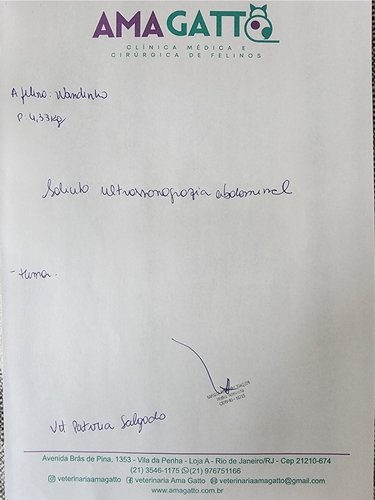 AMAGATTO
CLÍNICA MÉDICA E
CIRÚRGICA DE FELINOS
A felino: Wandinho
P: 4,33kg
Solicito ultrassonografia abdominal
- tumor.
Vet Patricia Salgado
Avenida Brás de Pina, 1353 - Vila da Penha - Loja A - Rio de Janeiro/RJ - Cep 21210-674
(21) 3546-1175 (21) 976751166
veterinariaamagatto veterinaria Ama Gatto veterinariaamagatto@gmail.com
www.amagatto.com.br